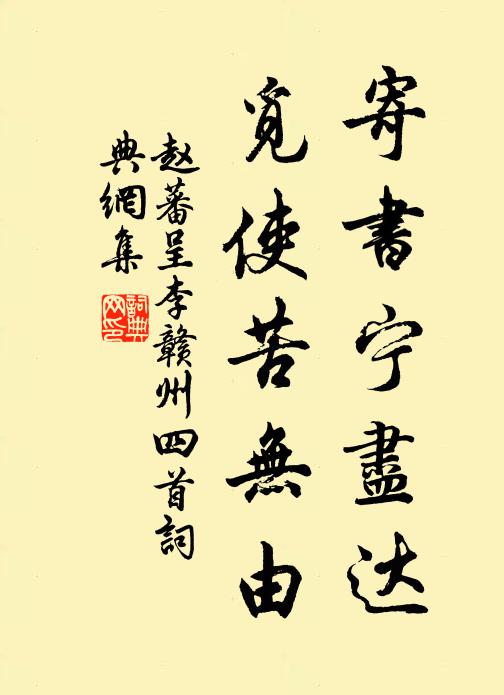 寄書宁盡达
覓使苦無由
赵蕃呈李赣州四首詞
典網集
詞典网印